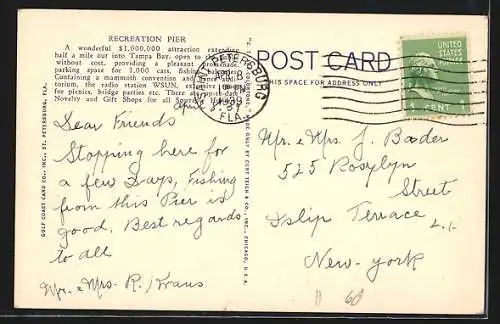 RECREATION PIER
A wonderful $1,000,000 attraction extending
half a mile out into Tampa Bay, open to the
without cost, providing a pleasant promenade,
parking space for 1,000 cars, fishing balconies.
Containing a mammoth convention and dance audi-
torium, the radio station WSUN, extensive
for picnics, bridge parties etc. There are up-to-date
Novelty and Gift Shops for all
GULF COAST CARD CO., INC., ST. PETERSBURG, FLA.
April
Dear Friends
Stopping here for
a few Days, Fishing
from this Pier is
good. Best regards
to all
Mr. & Mrs. R. Kraus
MADE ONLY BY CURT TEICH & CO., INC., CHICAGO, U.S.A.
SAINT PETERSBURG
FLA.
1939
POST CARD
THIS SPACE FOR ADDRESS ONLY
UNITED
STATES
POSTAGE
1 CENT 1
Mr. & Mrs. J. Bader
525 Roslyn
Street
Islip Terrace
L.I.
New-york
60